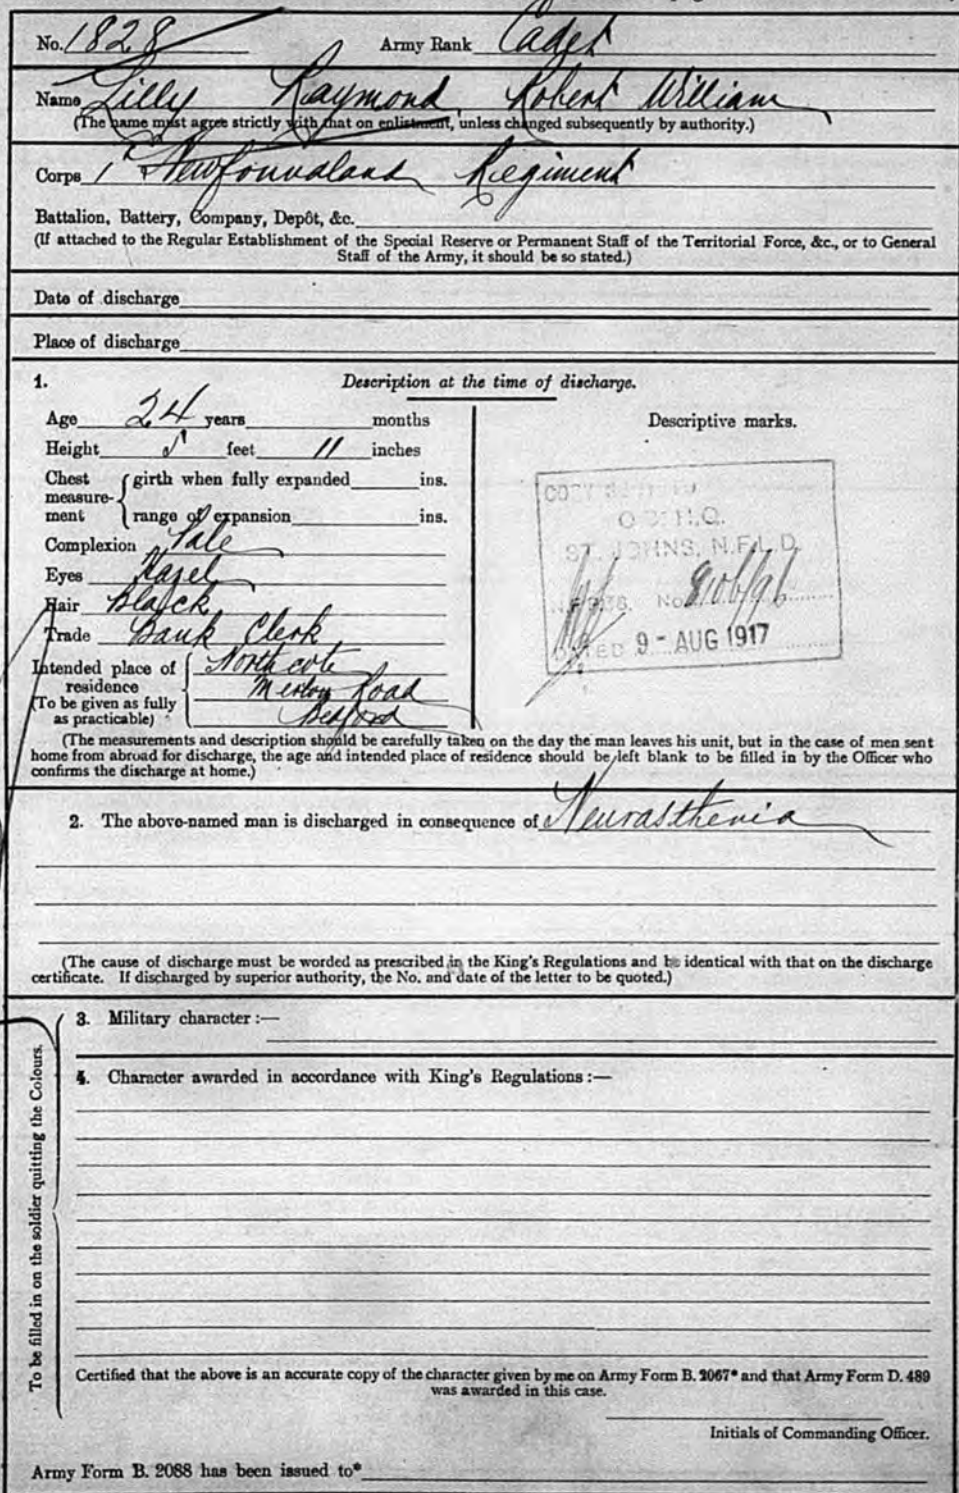 No. 1828 Army Rank Cadet
Name Lilly Raymond Robert William
(The name must agree strictly with that on enlistment, unless changed subsequently by authority.)
Corps 1st Newfoundland Regiment
Battalion, Battery, Company, Depôt, &c.
(If attached to the Regular Establishment of the Special Reserve or Permanent Staff of the Territorial Force, &c., or to General
Staff of the Army, it should be so stated.)
Date of discharge
Place of discharge
1. Description at the time of discharge.
Age 24 years months
Height 5 feet 11 inches
Chest measurement girth when fully expanded ins.
range of expansion ins.
Complexion Pale
Eyes Hazel
Hair Black
Trade Bank Clerk
Intended place of residence Northcote
(To be given as fully as practicable) Road
Bedford
Descriptive marks.
ST. JOHNS, N.F.L.D.
No.
DATED 9 - AUG 1917
(The measurements and description should be carefully taken on the day the man leaves his unit, but in the case of men sent
home from abroad for discharge, the age and intended place of residence should be left blank to be filled in by the Officer who
confirms the discharge at home.)
2. The above-named man is discharged in consequence of Neurasthenia
(The cause of discharge must be worded as prescribed in the King's Regulations and be identical with that on the discharge
certificate. If discharged by superior authority, the No. and date of the letter to be quoted.)
To be filled in on the soldier quitting the Colours.
3. Military character :—
4. Character awarded in accordance with King's Regulations :—
Certified that the above is an accurate copy of the character given by me on Army Form B. 2067* and that Army Form D. 489
was awarded in this case.
Initials of Commanding Officer.
Army Form B. 2088 has been issued to*